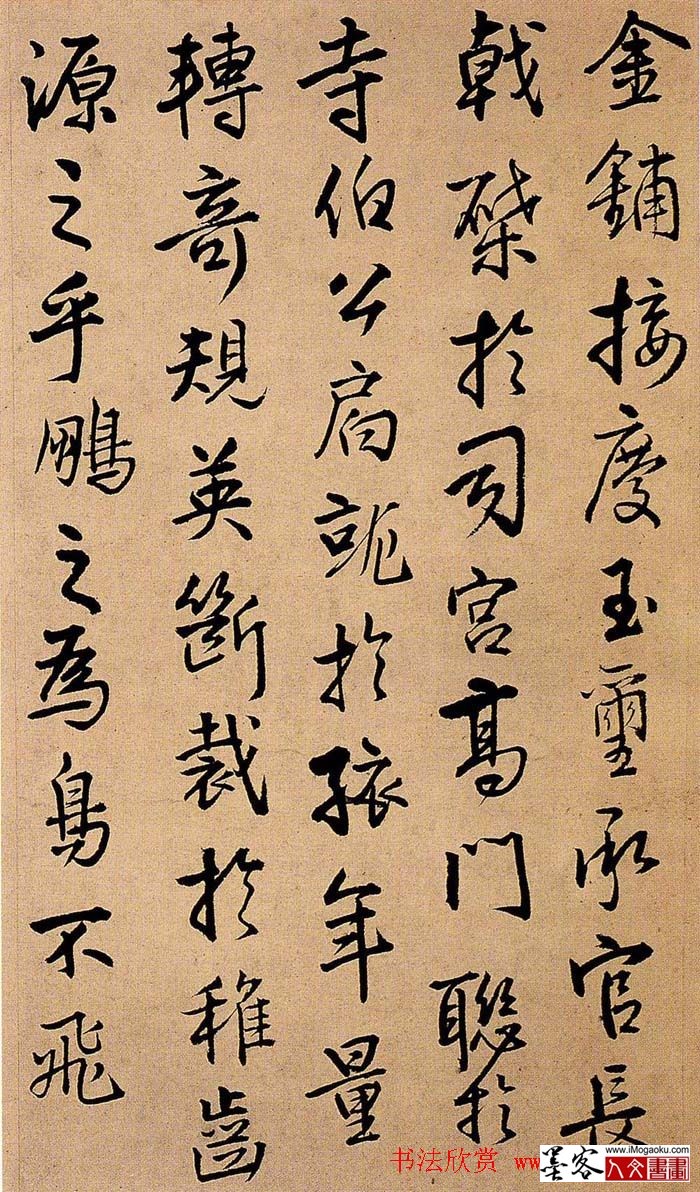 金鋪接慶玉璽承官長
戟於司宮高門聯於
寺伯公於孩年量
轉奇規英斷裁於稚齒
源之乎鵬之為鳥不飛
书法欣赏 www
墨客
人文書畫
www.iMogaoku.com